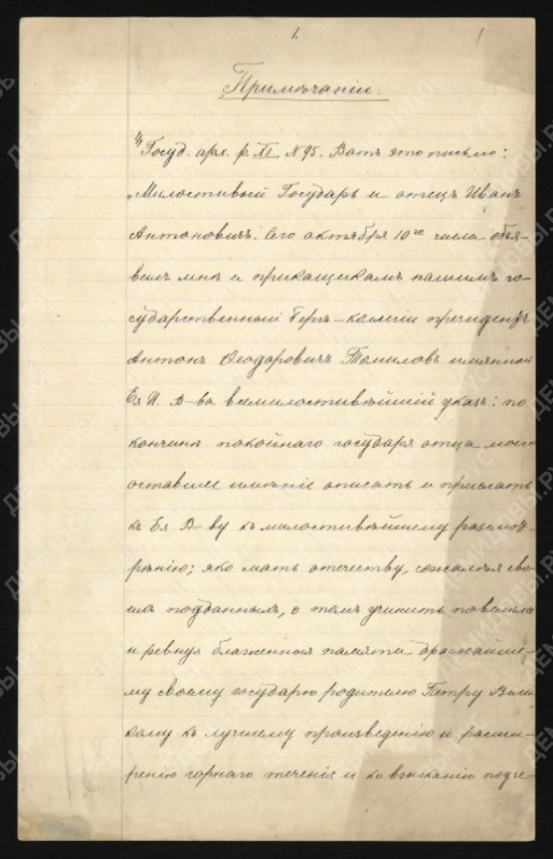 1.
1
Примѣчанія.
1) Госуд. арх. р. XI N 95. Вотъ это письмо:
„Милостивый Государь и отецъ Иванъ
Антоновичъ. Сего октября 10го числа объя-
вилъ мнѣ и прикащикамъ нашимъ го-
сударственной Бергъ-коллегіи президентъ
Антонъ Ѳеодоровичъ Томиловъ имянной
Ея И. В-ва всемилостивѣйшій указъ: по
кончинѣ покойнаго государя отца моего
оставшее имѣніе описать и прислать
къ Ея В-ву къ милостивѣйшему разсмот-
рѣнію; яко мать отечеству, сожалѣя сво-
имъ подданнымъ, о томъ учинить повелѣла
и ревнуя блаженной памяти дражайше-
му своему государю родителю Петру Вели-
кому къ лучшему произведенію и расши-
ренію горнаго теченія и ко взысканію подзе-